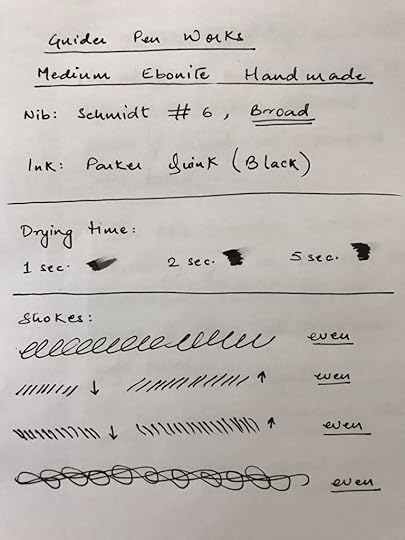 Guider Pen Works
Medium Ebonite Handmade
Nib: Schmidt # 6, Broad
Ink: Parker Quink (Black)
Drying time:
1 sec. 2 sec. 5 sec.
Stokes:
even
↓ ↑ even
↓ ↑ even
even